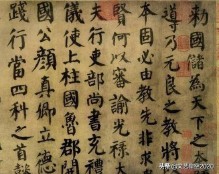 勅國儲為天下之
導乃元良之教將
本固必由教先非求
賢何以審諭光祿大
夫行吏部尚書充禮
儀使上柱國魯郡開
國公顏真卿立德
踐行當四科之首懿